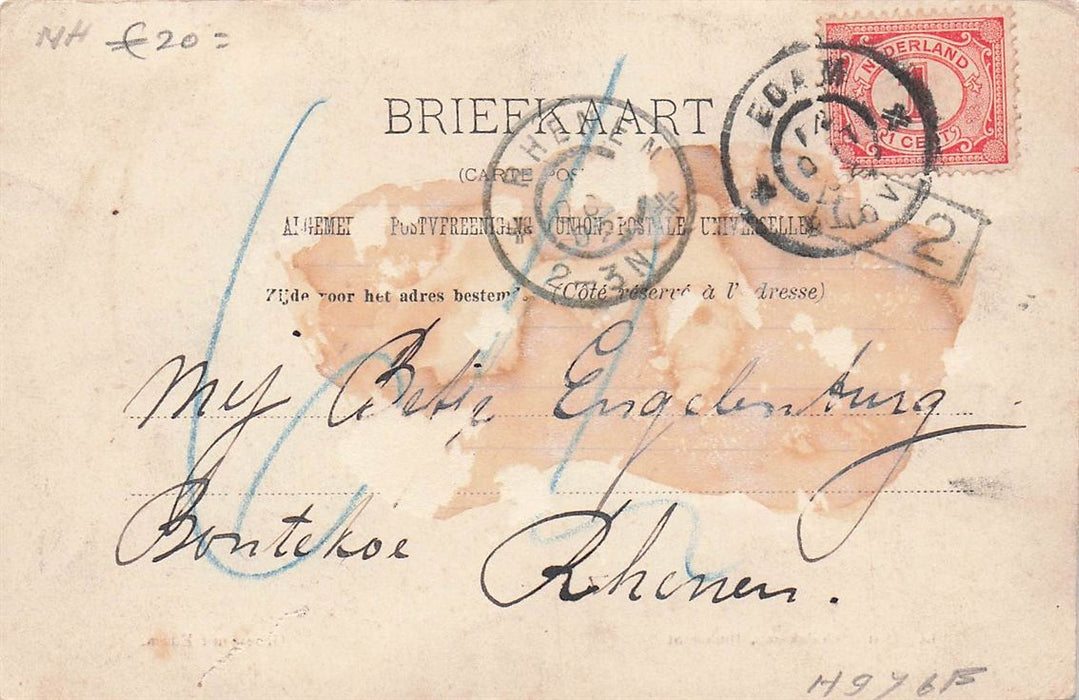 NH € 20=
NEDERLAND
1
1 CENT
EDAM
BRIEFKAART
RHENEN
2-3N
(CARTE POS
2
ALGEMEI POSTVEREENIGING (UNION POSTALE UNIVERSELLE
Zijde voor het adres bestem (Côté réservé à l' dresse)
Mej Betje Engelenburg
Bontekoe
Rhenen.
H976F